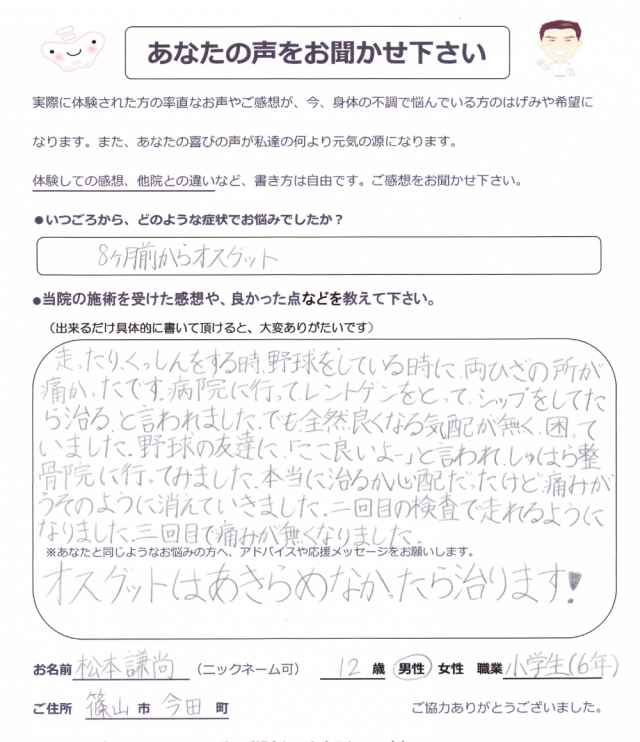 あなたの声をお聞かせ下さい
実際に体験された方の率直なお声やご感想が、今、身体の不調で悩んでいる方のはげみや希望に
なります。また、あなたの喜びの声が私達の何より元気の源になります。
体験しての感想、他院との違いなど、書き方は自由です。ご感想をお聞かせ下さい。
●いつごろから、どのような症状でお悩みでしたか？
8ヶ月前からオスグット
●当院の施術を受けた感想や、良かった点などを教えて下さい。
（出来るだけ具体的に書いて頂けると、大変ありがたいです）
走ったり、くっしんをする時、野球をしている時に、両ひざの所が
痛かったです。病院に行ってレントゲンをとって、シップをしてた
ら治る。と言われました。でも全然良くなる気配が無く、困って
いました。野球の友達に、「ここ良いよー」と言われ、しゅはら整
骨院に行ってみました。本当に治るか心配だったけど、痛みが
うそのように消えていきました。二回目の検査で走れるように
なりました。三回目で痛みが無くなりました。
※あなたと同じようなお悩みの方へ、アドバイスや応援メッセージをお願いします。
オスグットはあきらめなかったら治ります!
お名前 松本謙尚 （ニックネーム可） 12 歳 男性 女性 職業 小学生(6年)
ご住所 篠山 市 今田 町 ご協力ありがとうございました。